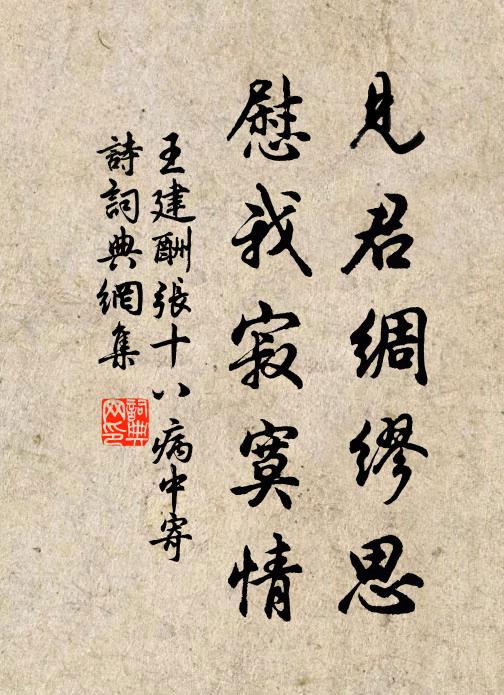 見君綢繆思
慰我寂寞情
王建酬張十八病中寄
詩詞典網集
詞典
网印